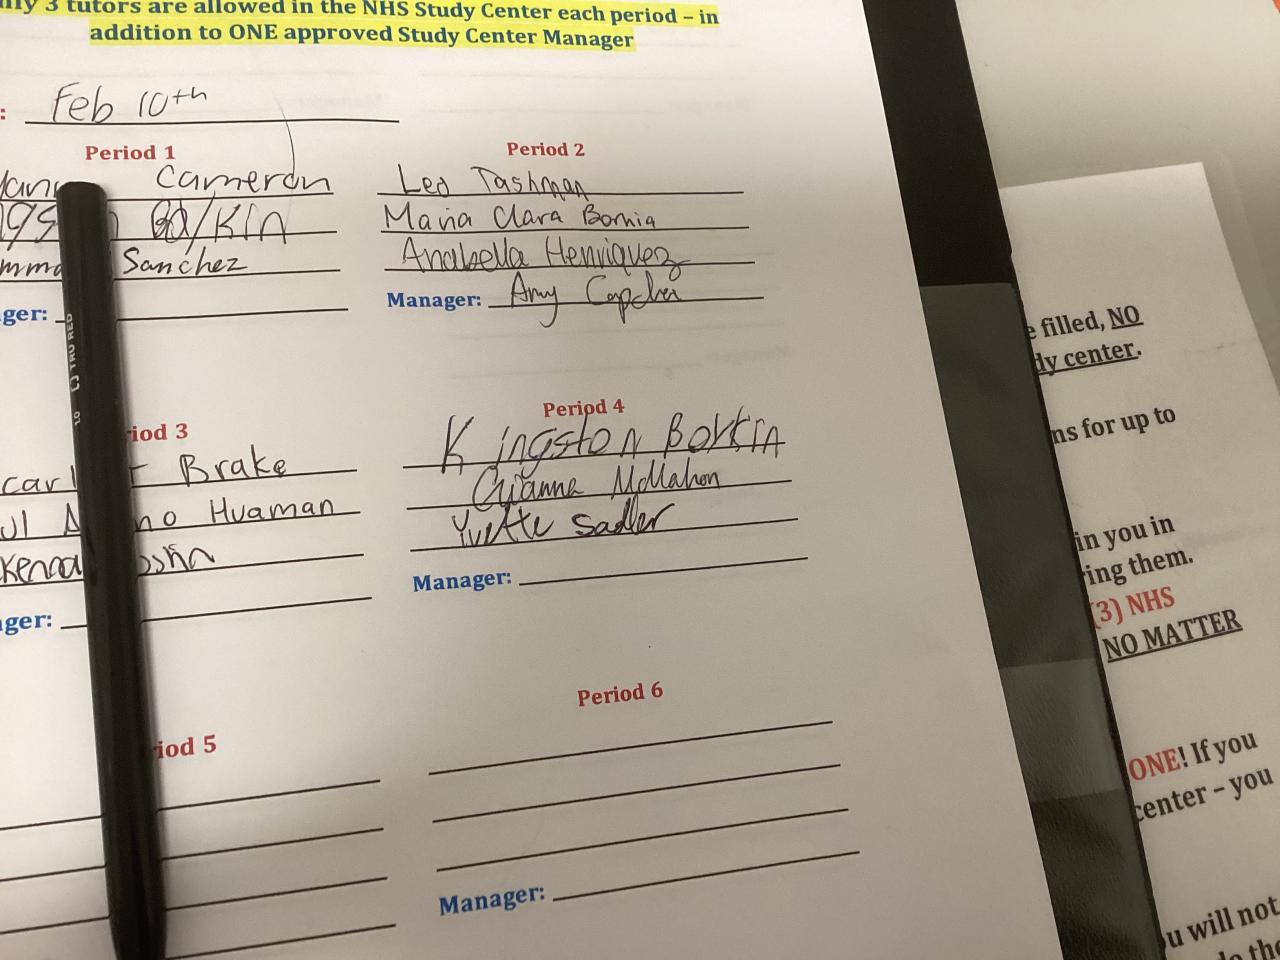 3 tutors are allowed in the NHS Study Center each period – in
addition to ONE approved Study Center Manager
: Feb 10th
Period 1
Cameron
Sanchez
ger:
Period 2
Leo Tashman
Maria Clara Bornia
Anabella Henriquez
Manager: Amy Capcha
iod 3
Brake
no Huaman
ger:
Period 4
Kingston Borkin
Gianna McMahon
Yvette Sadler
Manager:
iod 5
Period 6
Manager:
TRU RED
1.0
filled, NO
dy center.
ns for up to
in you in
ring them.
(3) NHS
NO MATTER
ONE! If you
center – you
u will not